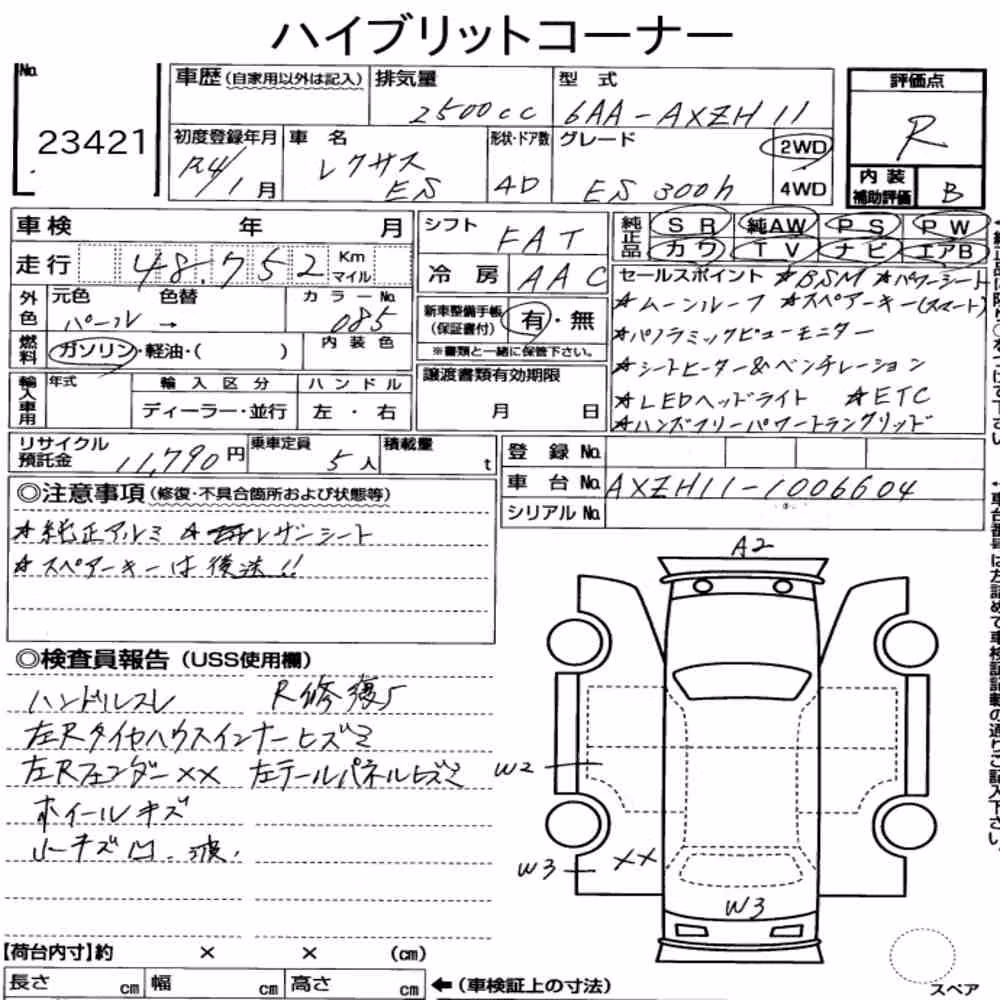 ハイブリットコーナー
No. 23421
車歴（自家用以外は記入） 排気量 2500cc 型式 6AA-AXZH11
評価点 R
初度登録年月 R4/1月 車名 レクサス ES 形状・ドア数 4D グレード ES 300h 2WD 4WD
内装補助評価 B
車検 年 月 シフト FAT
純正品 SR 純AW PS PW
カワ TV ナビ エアB
走行 48.752 Km マイル 冷房 AAC
セールスポイント ★BSM ★パワーシート
★ムーンルーフ ★スペアーキー(スマート)
外色 元色 パール → 色替 カラーNo. 085
新車整備手帳（保証書付） 有・無
※書類と一緒に保管下さい。
★パノラミックビューモニター
燃料 ガソリン・軽油・( ) 内装色
★シートヒーター&ベンチレーション
輸入車用 年式 輸入区分 ハンドル
ディーラー・並行 左・右
譲渡書類有効期限 月 日
★LEDヘッドライト ★ETC
★ハンズフリーパワートランクリッド
リサイクル預託金 11,790円 乗車定員 5人 積載量 t
登録No.
車台No. AXZH11-1006604
シリアルNo.
◎注意事項（修復・不具合箇所および状態等）
★純正アルミ ★レザーシート
★スペアーキーは後送!!
◎検査員報告（USS使用欄）
ハンドルスレ R修復5
左Rタイヤハウスインナーヒズミ
左Rフェンダー×× 左テールパネルヒズミ
ホイールキズ
小キズ凹.波.
A2
W2
W3 ××
W3
【荷台内寸】約 × × (cm)
長さ cm 幅 cm 高さ cm ←（車検証上の寸法）
スペア
↑車台番号は左詰めで車検証記載の通りご記入下さい。